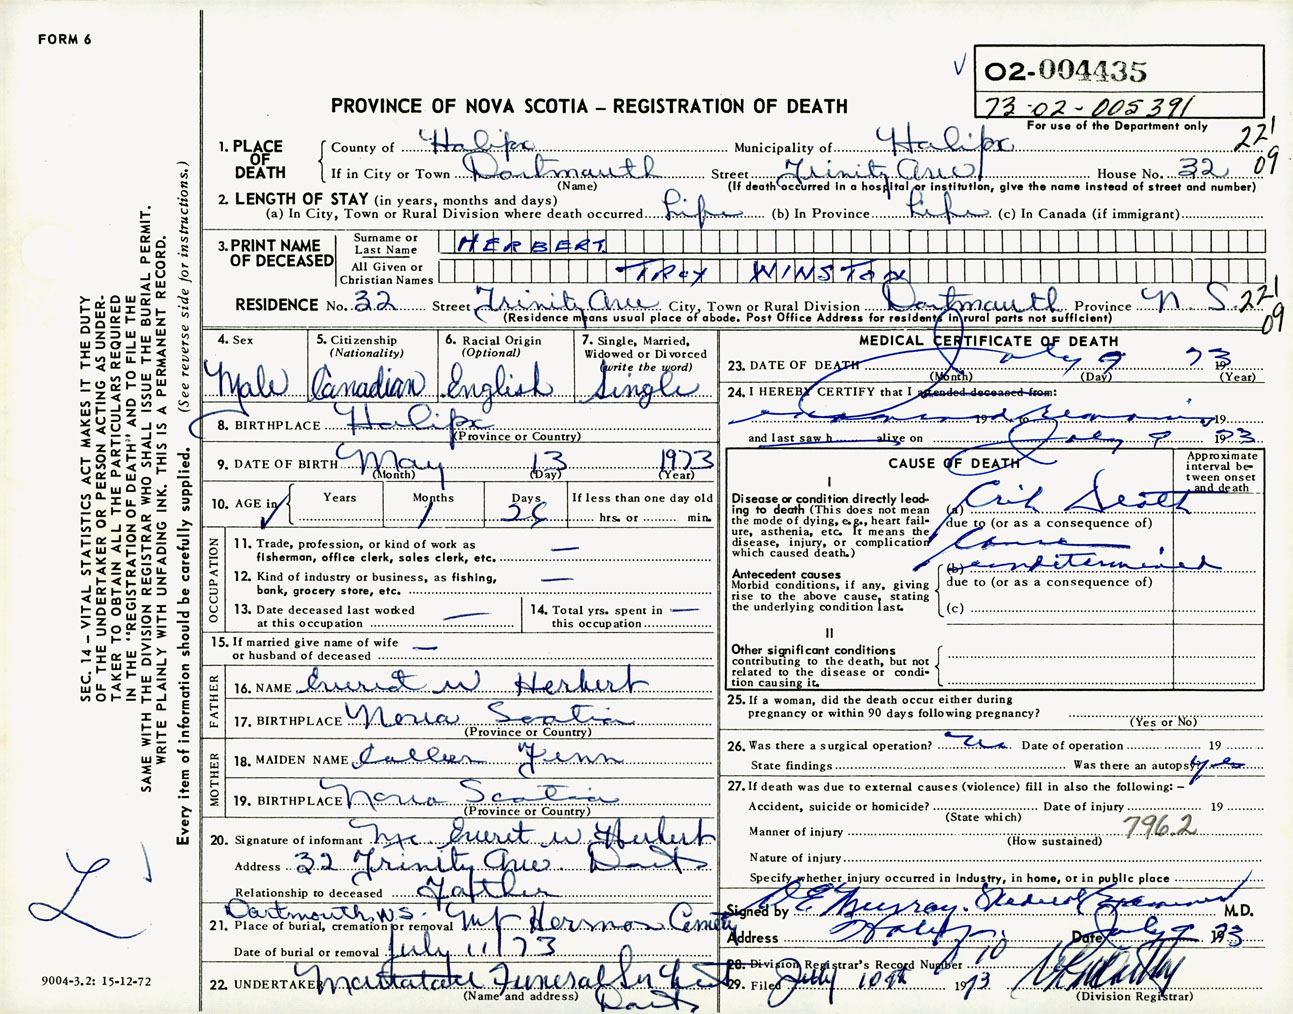 FORM 6
02-004435
73-02-005391
For use of the Department only
PROVINCE OF NOVA SCOTIA – REGISTRATION OF DEATH
221
09
1. PLACE OF DEATH
County of Halifax Municipality of Halifax
If in City or Town Dartmouth Street Trinity Ave House No. 32
(Name) (If death occurred in a hospital or institution, give the name instead of street and number)
2. LENGTH OF STAY (in years, months and days)
(a) In City, Town or Rural Division where death occurred Life (b) In Province Life (c) In Canada (if immigrant)
3. PRINT NAME OF DECEASED
Surname or Last Name HERBERT
All Given or Christian Names TROY WINSTON
RESIDENCE No. 32 Street Trinity Ave City, Town or Rural Division Dartmouth Province N S.
221
09
(Residence means usual place of abode. Post Office Address for resident in rural parts not sufficient)
4. Sex
Male
5. Citizenship
(Nationality)
Canadian
6. Racial Origin
(Optional)
English
7. Single, Married,
Widowed or Divorced
(write the word)
Single
8. BIRTHPLACE Halifax
(Province or Country)
9. DATE OF BIRTH May 13 1973
(Month) (Day) (Year)
10. AGE in Years Months Days If less than one day old
1 26 hrs. or min.
OCCUPATION
11. Trade, profession, or kind of work as
fisherman, office clerk, sales clerk, etc. —
12. Kind of industry or business, as fishing,
bank, grocery store, etc. —
13. Date deceased last worked
at this occupation —
14. Total yrs. spent in
this occupation —
15. If married give name of wife
or husband of deceased —
FATHER
16. NAME Everet W Herbert
17. BIRTHPLACE Nova Scotia
(Province or Country)
MOTHER
18. MAIDEN NAME Colleen Fenn
19. BIRTHPLACE Nova Scotia
(Province or Country)
20. Signature of informant Mr Everet W Herbert
Address 32 Trinity Ave. Dart
Relationship to deceased Father
Dartmouth N.S.
21. Place of burial, cremation or removal Mt Hermon Cemetery
Date of burial or removal July 11/73
22. UNDERTAKER Funeral
(Name and address) Dart
MEDICAL CERTIFICATE OF DEATH
23. DATE OF DEATH July 9 1973
(Month) (Day) (Year)
24. I HEREBY CERTIFY that I attended deceased from:
examined remains 19 to 19
and last saw h alive on July 9 1973
CAUSE OF DEATH
Approximate interval between onset and death
I
Disease or condition directly leading to death (This does not mean the mode of dying, e.g., heart failure, asthenia, etc. It means the disease, injury, or complication which caused death.)
(a) Crib Death
due to (or as a consequence of)
Cause
Antecedent causes
Morbid conditions, if any, giving rise to the above cause, stating the underlying condition last.
(b) undetermined
due to (or as a consequence of)
(c)
II
Other significant conditions
contributing to the death, but not related to the disease or condition causing it.
25. If a woman, did the death occur either during
pregnancy or within 90 days following pregnancy?
(Yes or No)
26. Was there a surgical operation? No Date of operation 19
State findings Was there an autopsy? yes
27. If death was due to external causes (violence) fill in also the following: –
Accident, suicide or homicide? Date of injury 19
(State which)
Manner of injury 796.2
(How sustained)
Nature of injury
Specify whether injury occurred in Industry, in home, or in public place
Signed by D E Murray. Medical Examiner M.D.
Address Halifax Date July 9 1973
28. Division Registrar's Record Number 10
29. Filed July 10th 1973
(Division Registrar)
SEC. 14 – VITAL STATISTICS ACT MAKES IT THE DUTY
OF THE UNDERTAKER OR PERSON ACTING AS UNDER-
TAKER TO OBTAIN ALL THE PARTICULARS REQUIRED
IN THE "REGISTRATION OF DEATH" AND TO FILE THE
SAME WITH THE DIVISION REGISTRAR WHO SHALL ISSUE THE BURIAL PERMIT.
WRITE PLAINLY WITH UNFADING INK. THIS IS A PERMANENT RECORD.
Every item of information should be carefully supplied. (See reverse side for instructions.)
9004-3.2: 15-12-72